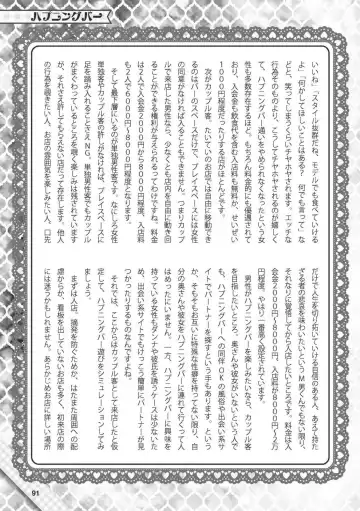 ハプニングバー
いいね」「スタイル抜群だね。モデルでも食べていける
よ」「何かしてほしいことはある? 何でも言って」な
どと、笑ってしまうくらいチヤホヤされます。エッチな
行為そのものより、こうしてチヤホヤされるのが嬉しく
て、ハプニングバー通いをやめられなくなったという女
性も多数存在するほど。もちろん料金的にも優遇されて
おり、入会金も飲食代も含め入店料も無料か、せいぜい
1000円程度だったりする店がほとんどです。
次がカップル客。たいていのお店では自由に移動でき
るのはバーのスペースだけで、プレイスペースには女性
の同意がなければ入ることもできません。つまりカップ
ルで来店した男性なら、少なくとも店内を自由に動き回
ることができる権利が与えられるわけですね。料金
は2人で入会金2000円から8000円程度、入店料
も2人で6000円〜8000円程度となります。
そして最下層にいるのが単独男性客です。なにしろ女性
単独客やカップル客の許しがなければ、プレイスペースに
足を踏み入れることさえNG。単独男性客でもカップル
がまぐわっているところを覗く楽しみは残されています
が、それさえ許してもらえない店だって存在します。他人
の行為を覗きたい人、お店の雰囲気を楽しみたい人、口先
だけで人生を切り拓いていける自信のある人、あえて持た
ざる者の悲哀を味わいたいというM男くんでもない限り、
それなりに覚悟してから入店したいところです。料金は入
会金2000円〜8000円、入店料が8000円〜2万
円程度。やはり一番高く設定されています。
男性がハプニングバーを楽しみたいなら、カップル客
を目指したいところ。奥さんや彼女がいないという人で
も、ハプニングバーへの同伴OKの風俗や出会い系サ
イトでパートナーを探すという手もあります。というか、
そもそもお互いに特殊な性癖を持ってない限り、自
分の奥さんや彼女をハプニングバーに連れて行くって人
はめったにいませんから。一方、ハプニングバーに興味を
持った女性がパートナーや彼氏を誘うケースは少ないた
め、出会い系サイトでもけっこう簡単にパートナーが見
つかったりするものなんですよね。
それでは、ここからはカップル客として来店したと仮
定して、ハプニングバー遊びをシミュレーションしてみ
ましょう。
まずは入店。摘発を防ぐためか、はたまた周囲への配
慮からか、看板を出していないお店も多く、初来店の際
には迷うかもしれません。あらかじめお店に詳しい場所
91